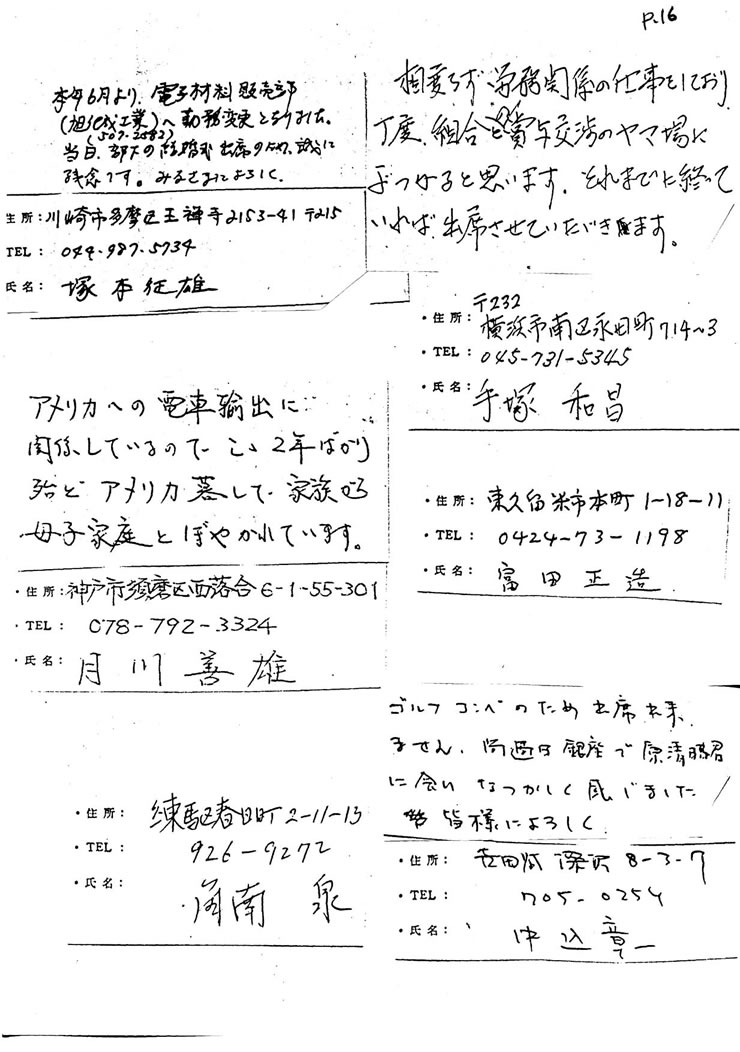 P.16
本年6月より、電子材料販売部
(旭化成工業)へ勤務変更となりました。
(507-2882)
当日、部下の結婚式出席のため、誠に
残念です。みなさまによろしく。
住所:川崎市多摩区王禅寺2153-41 〒215
TEL: 044-987-5734
氏名: 塚本征雄
相変らず労務関係の仕事をしており
丁度、組合と賞与交渉のヤマ場に
ぶつかると思います。それまでに終って
いれば出席させていただきます。
〒232
・住所: 横浜市南区永田町714-3
・TEL: 045-731-5345
・氏名: 手塚和昌
アメリカへの電車輸出に
関係しているので、ここ2年ばかり
殆どアメリカ暮して、家族から
母子家庭とぼやかれています。
・住所:神戸市須磨区西落合6-1-55-301
・TEL: 078-792-3324
・氏名: 月川善雄
・住所: 東久留米市本町1-18-11
・TEL: 0424-73-1198
・氏名: 富田正造
ゴルフコンペのため出席出来
ません。先週は銀座で原清勝君
に会いなつかしく感じました
皆様によろしく
・住所: 世田谷深沢8-3-7
・TEL: 705-0254
・氏名: 中込章一
・住所: 練馬区春日町2-11-13
・TEL: 926-9272
・氏名: 角南泉